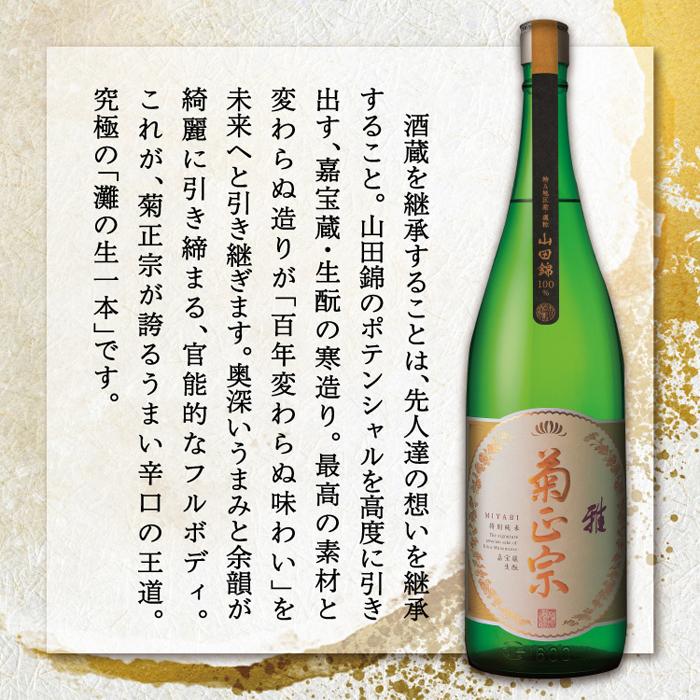 酒蔵を継承することは、先人達の想いを継承
すること。山田錦のポテンシャルを高度に引き
出す、嘉宝蔵・生酛の寒造り。最高の素材と
変わらぬ造りが「百年変わらぬ味わい」を
未来へと引き継ぎます。奥深いうまみと余韻が
綺麗に引き締まる、官能的なフルボディ。
これが、菊正宗が誇るうまい辛口の王道。
究極の「灘の生一本」です。
特A地区産 選粒
山田錦
100
%
雅
菊正宗
MIYABI
特別純米
The signature
premium sake of
Kiku-Masamune
嘉宝蔵
生酛